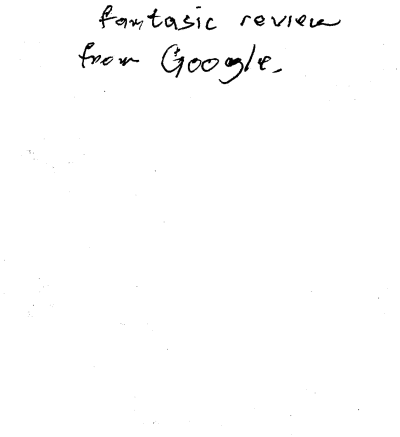 fantasic review
from Google.